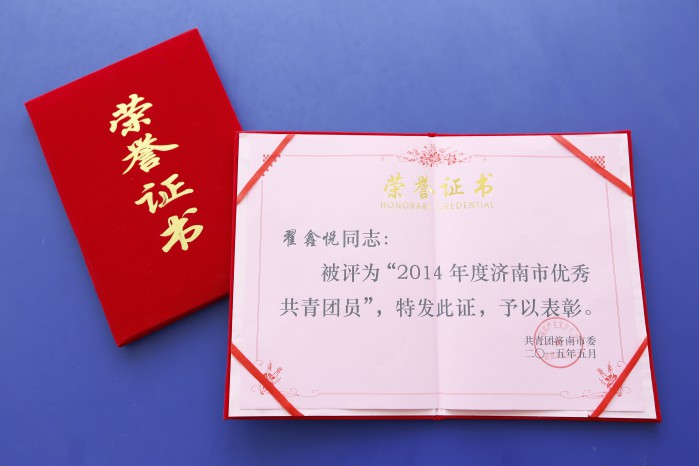 荣誉证书
荣誉证书
HONORARY CREDENTIAL
翟鑫悦同志：
被评为“2014年度济南市优秀
共青团员”，特发此证，予以表彰。
共青团济南市委
二〇一五年五月